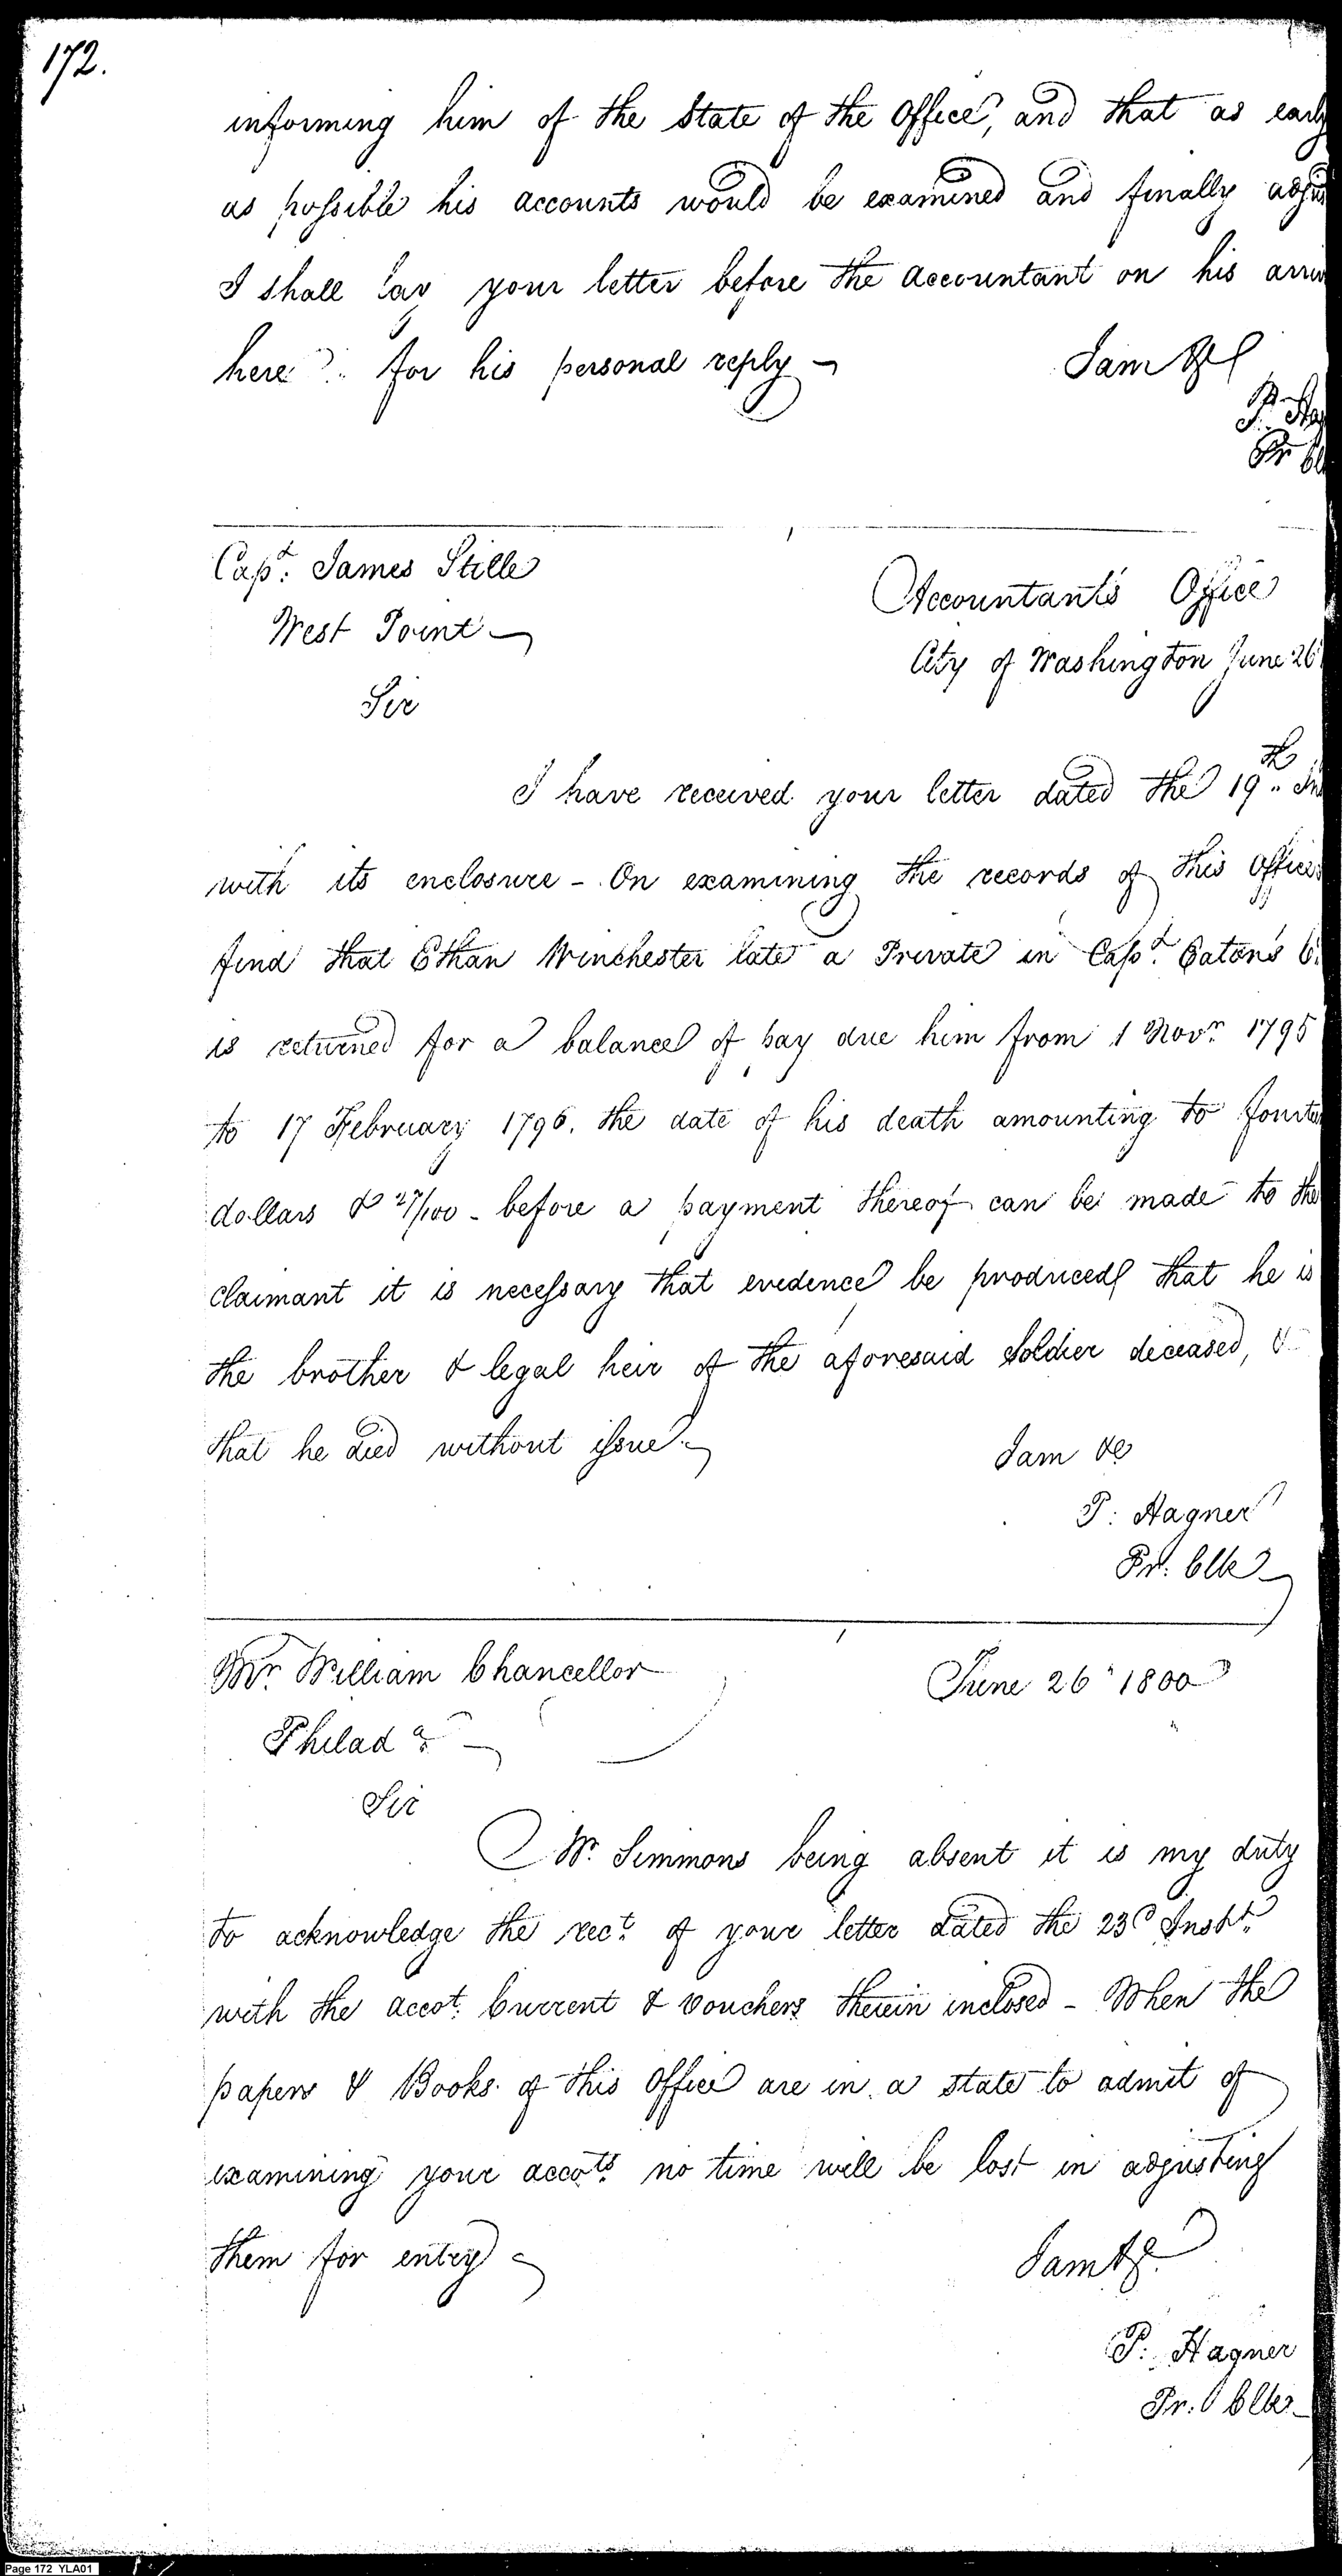 172.
informing him of the State of the Office, and that as early
as possible his accounts would be examined and finally adjus
I shall lay your letter before the Accountant on his arriv
here for his personal reply –
I am &c
P. Hag
Pr Cl
Capt. James Stille
West Point
Accountant's Office
City of Washington June 26
Sir
I have received your letter dated the 19th. In
with its enclosure - On examining the records of this Office
find that Ethan Winchester late a Private in Capt. Eaton's C.
is returned for a balance of pay due him from 1 Novr. 1795
to 17 February 1796. the date of his death amounting to fourte
dollars & 27/100 - before a payment thereof can be made to the
claimant it is necessary that evidence be produced that he is
the brother & legal heir of the aforesaid Soldier deceased, &
that he died without issue.
I am &c
P: Hagner
Pr. Clk
Mr. William Chancellor
Philada.
June 26 1800
Sir
Mr. Simmons being absent it is my duty
to acknowledge the rect. of your letter dated the 23d Instt.
with the accot. Current & vouchers therein inclosed - When the
papers & Books of this Office are in a state to admit of
examining your accots. no time will be lost in adjusting
them for entry
I am &c.
P. Hagner
Pr. Clk
Page 172 YLA01